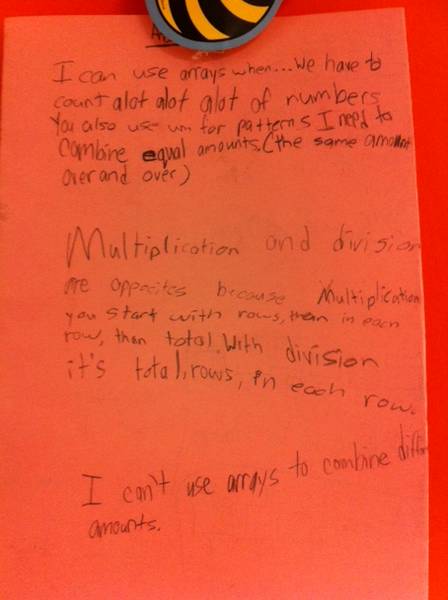 I can use arrays when... We have to
count alot alot alot of numbers
You also use um for patterns I need to
combine equal amounts. (the same amount
over and over)
Multiplication and division
are oppocites because Multiplication
you start with rows, then in each
row, than total. With division
it's total, rows, in each row.
I can't use arrays to combine
amounts.